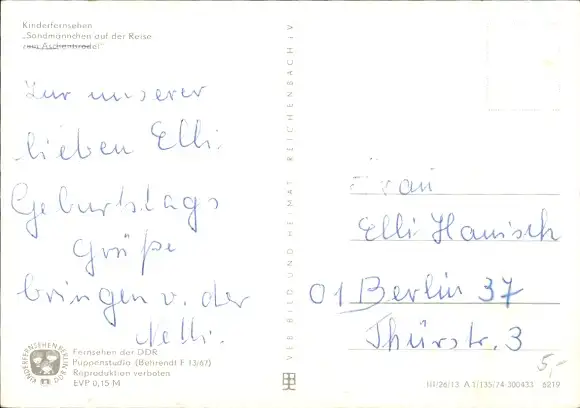 Kinderfernsehen
„Sandmännchen auf der Reise
zum Aschenbrödel"
Zur unserer
lieben Elli.
Geburtstags
Grüße
bringen v. der
Nelli.
KINDERFERNSEHEN BERLIN DDR
Fernsehen der DDR
Puppenstudio (Behrendt F 13/67)
Reproduktion verboten
EVP 0,15 M
VEB BILD UND HEIMAT REICHENBACH i V
Frau
Elli Hanisch
01 Berlin 37
Thürstr. 3
5,-
III/26/13 A 1/135/74 300433 6219